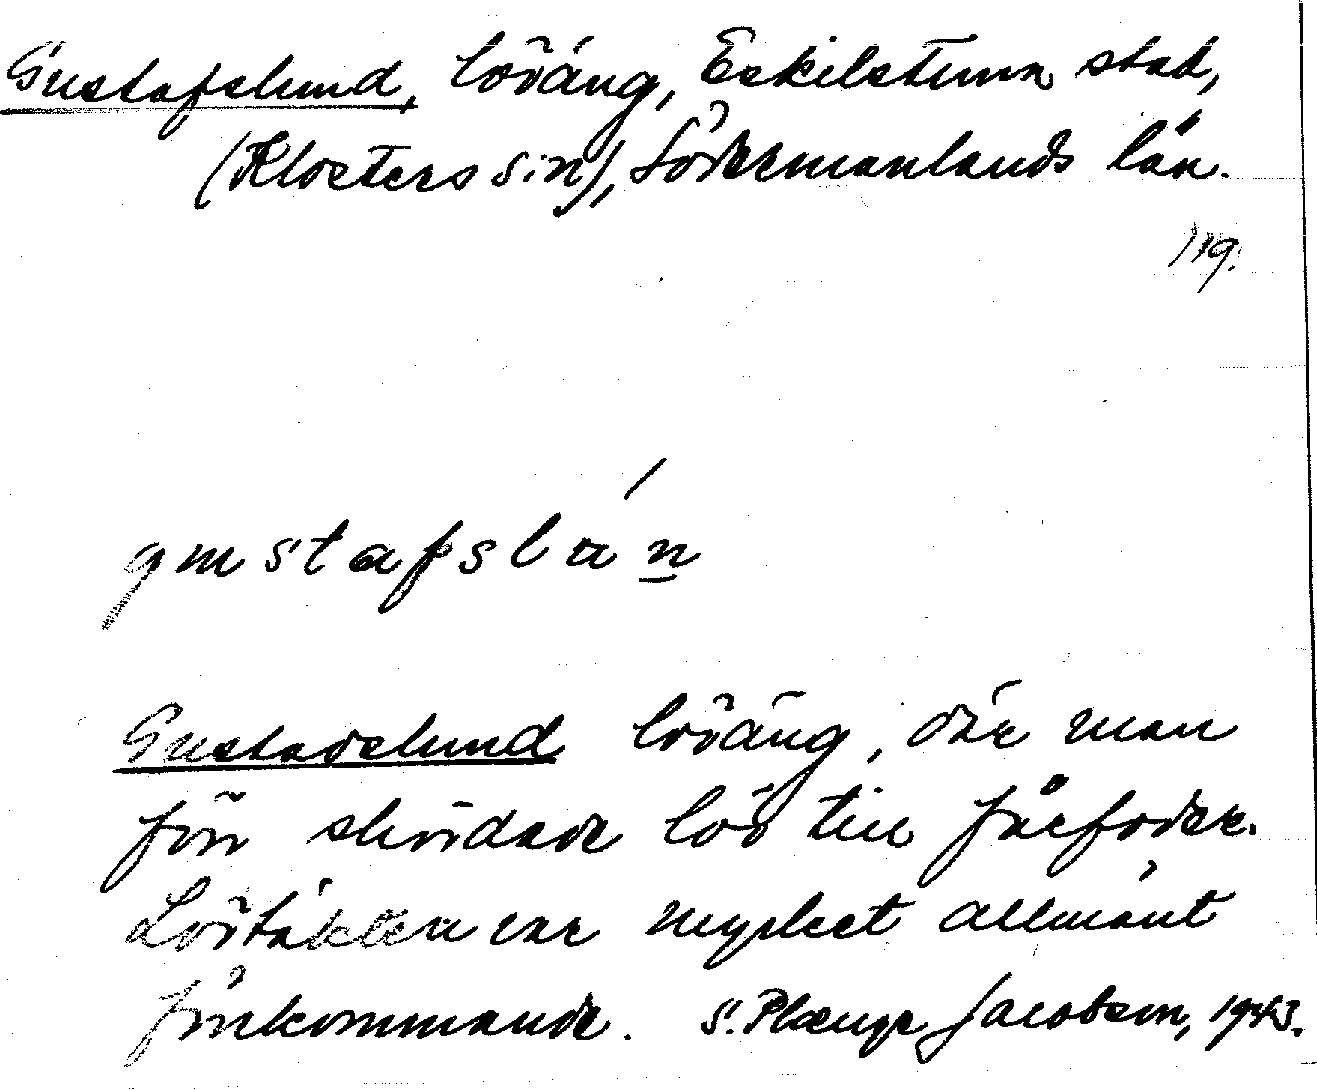 Gustafslund, löväng, Eskilstuna stad,
(Klosters s:n), Södermanlands län.
119.
gustafslun
Gustavslund löväng, där man
förr skördade löv till fårfoder.
Lövtäkten var mycket allmänt
förekommande. S. Plænge Jacobson, 1943.